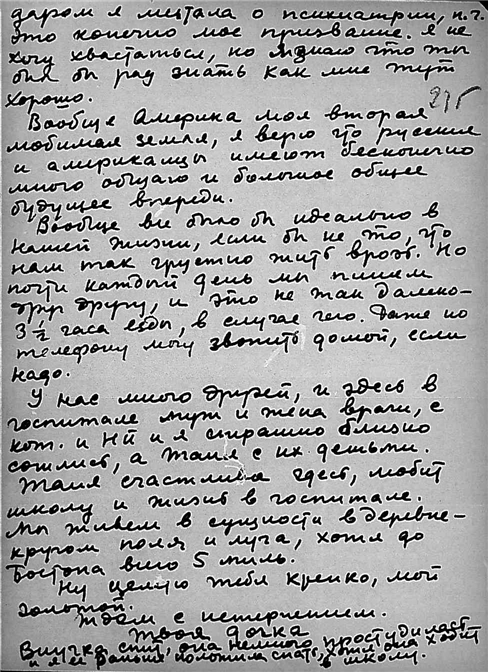 даром я мечтала о психиатрии, п.ч.
это конечно мое призвание. Я не
хочу хвастаться, но я знаю что ты
был бы рад знать как мне тут
хорошо.
295
Вообще Америка моя вторая
любимая земля, я верю что русские
и американцы имеют бесконечно
много общаго и большое общее
будущее впереди.
Вообще все было бы идеально в
нашей жизни, если бы не то, что
нам так грустно жить врозь. Но
почти каждый день мы пишем
друг другу, и это не так далеко-
3 1/2 часа езды, в случае чего. Даже по
телефону могу звонить домой, если
надо.
У нас много друзей, и здесь в
госпитале муж и жена врачи, с
кот. и я страшно близко
сошлись, а Таня с их детьми.
Таня счастлива здесь, любит
школу и жизнь в госпитале.
Мы живем в сущности в деревне-
кругом поля и луга, хотя до
Бостона всего 5 миль.
Ну целую тебя крепко, мой
золотой.
Ждем с нетерпением.
Твоя дочка
Внучка спит, она немного простудилась
и я ее раньше положила спать, хотя она ходит
в школу.